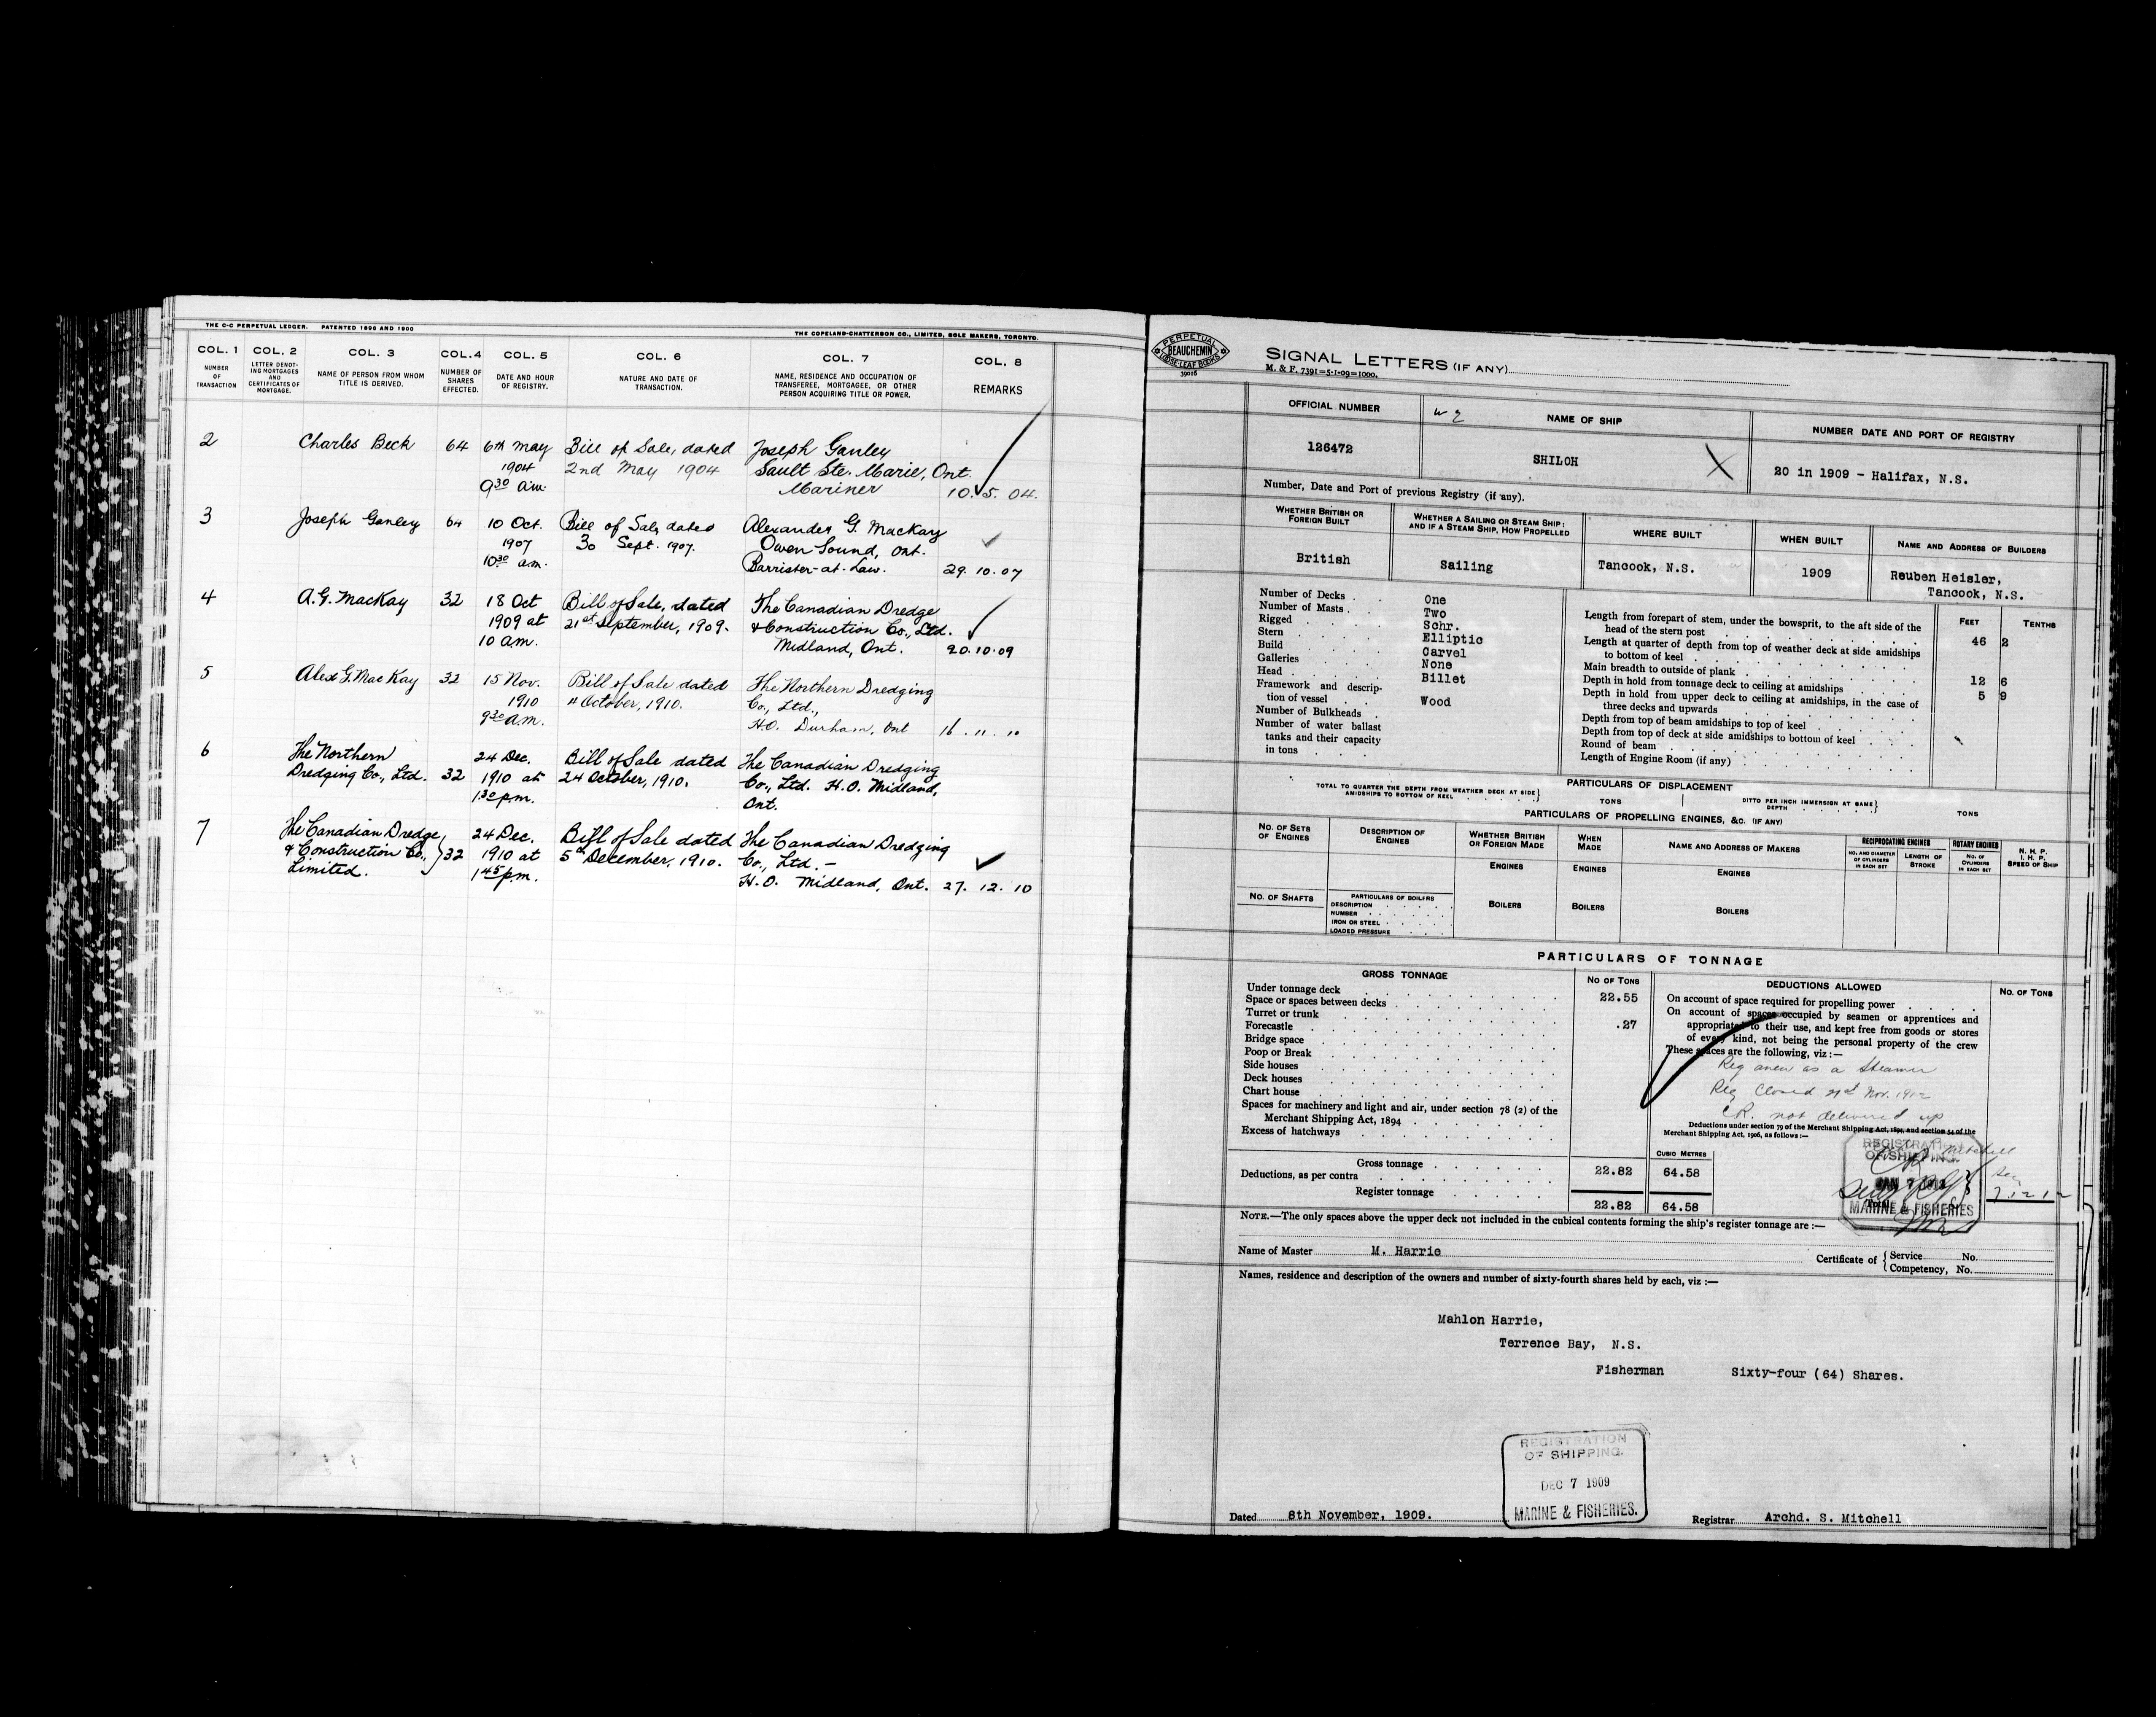 THE C-C PERPETUAL LEDGER. PATENTED 1896 AND 1900
THE COPELAND-CHATTERSON CO., LIMITED, SOLE MAKERS, TORONTO.
COL. 1 COL. 2 COL. 3 COL. 4 COL. 5 COL. 6 COL. 7 COL. 8
NUMBER OF TRANSACTION
LETTER DENOTING MORTGAGES AND CERTIFICATES OF MORTGAGE.
NAME OF PERSON FROM WHOM TITLE IS DERIVED.
NUMBER OF SHARES EFFECTED.
DATE AND HOUR OF REGISTRY.
NATURE AND DATE OF TRANSACTION.
NAME, RESIDENCE AND OCCUPATION OF TRANSFEREE, MORTGAGEE, OR OTHER PERSON ACQUIRING TITLE OR POWER.
REMARKS
2 Charles Beck 64 6th May Bill of Sale, dated Joseph Ganley
1904 2nd May 1904 Sault Ste. Marie, Ont.
9 30 a.m. Mariner 10.5.04.
3 Joseph Ganley 64 10 Oct. Bill of Sale, dated Alexander G. MacKay
1907 30 Sept. 1907. Owen Sound, Ont.
10 30 a.m. Barrister-at-Law. 29.10.07
4 A.G. MacKay 32 18 Oct Bill of Sale, dated The Canadian Dredge
1909 at 21st September, 1909. & Construction Co., Ltd.
10 a.m. Midland, Ont. 20.10.09
5 Alex G. MacKay 32 15 Nov. Bill of Sale dated The Northern Dredging
1910 11 October, 1910. Co., Ltd.,
9 30 a.m. H.O. Durham, Ont 16.11.10
6 The Northern 24 Dec. Bill of Sale dated The Canadian Dredging
Dredging Co., Ltd. 32 1910 at 24 October, 1910. Co., Ltd. H.O. Midland,
1 30 p.m. Ont.
7 The Canadian Dredge 24 Dec. Bill of Sale dated The Canadian Dredging
& Construction Co., } 32 1910 at 5th December, 1910. Co., Ltd. -
Limited. 1 45 p.m. H.O. Midland, Ont. 27.12.10
PERPETUAL
BEAUCHEMIN
LOOSE-LEAF BOOKS
39016
SIGNAL LETTERS (IF ANY)
M. & F. 7391=5-1-09=1000.
OFFICIAL NUMBER
NAME OF SHIP
NUMBER DATE AND PORT OF REGISTRY
126472
SHILOH
20 in 1909 - Halifax, N.S.
Number, Date and Port of previous Registry (if any).
WHETHER BRITISH OR FOREIGN BUILT
WHETHER A SAILING OR STEAM SHIP: AND IF A STEAM SHIP, HOW PROPELLED
WHERE BUILT
WHEN BUILT
NAME AND ADDRESS OF BUILDERS
British
Sailing
Tancook, N.S.
1909
Reuben Heisler,
Tancook, N.S.
Number of Decks . One
Number of Masts . Two
Rigged Schr.
Stern Elliptic
Build Carvel
Galleries None
Head Billet
Framework and description of vessel Wood
Number of Bulkheads
Number of water ballast
tanks and their capacity
in tons
FEET TENTHS
Length from forepart of stem, under the bowsprit, to the aft side of the
head of the stern post 46 2
Length at quarter of depth from top of weather deck at side amidships
to bottom of keel
Main breadth to outside of plank 12 6
Depth in hold from tonnage deck to ceiling at amidships 5 9
Depth in hold from upper deck to ceiling at amidships, in the case of
three decks and upwards
Depth from top of beam amidships to top of keel
Depth from top of deck at side amidships to bottom of keel
Round of beam
Length of Engine Room (if any)
PARTICULARS OF DISPLACEMENT
TOTAL TO QUARTER THE DEPTH FROM WEATHER DECK AT SIDE AMIDSHIPS TO BOTTOM OF KEEL } TONS
DITTO PER INCH IMMERSION AT SAME DEPTH } TONS
PARTICULARS OF PROPELLING ENGINES, &C. (IF ANY)
NO. OF SETS OF ENGINES
DESCRIPTION OF ENGINES
WHETHER BRITISH OR FOREIGN MADE
WHEN MADE
NAME AND ADDRESS OF MAKERS
RECIPROCATING ENGINES
NO. AND DIAMETER OF CYLINDERS IN EACH SET
LENGTH OF STROKE
ROTARY ENGINES
NO. OF CYLINDERS IN EACH SET
N. H. P.
I. H. P.
SPEED OF SHIP
ENGINES ENGINES ENGINES
NO. OF SHAFTS
PARTICULARS OF BOILERS
DESCRIPTION
NUMBER
IRON OR STEEL
LOADED PRESSURE
BOILERS BOILERS BOILERS
PARTICULARS OF TONNAGE
GROSS TONNAGE
NO OF TONS
DEDUCTIONS ALLOWED
NO. OF TONS
Under tonnage deck 22.55
Space or spaces between decks
Turret or trunk .27
Forecastle
Bridge space
Poop or Break
Side houses
Deck houses
Chart house
Spaces for machinery and light and air, under section 78 (2) of the
Merchant Shipping Act, 1894
Excess of hatchways
On account of space required for propelling power
On account of spaces occupied by seamen or apprentices and
appropriated to their use, and kept free from goods or stores
of every kind, not being the personal property of the crew
These spaces are the following, viz:—
Reg anew as a Steamer
Reg Closed Nov. 1912
C.R. not delivered up
Deductions under section 79 of the Merchant Shipping Act, 1894, and section 54 of the
Merchant Shipping Act, 1906, as follows:—
CUBIC METRES
Gross tonnage 22.82 64.58
Deductions, as per contra
Register tonnage 22.82 64.58
REGISTRATION
OF SHIPPING.
MARINE & FISHERIES
NOTE.—The only spaces above the upper deck not included in the cubical contents forming the ship's register tonnage are:—
Name of Master M. Harrie
Certificate of { Service No.
Competency, No.
Names, residence and description of the owners and number of sixty-fourth shares held by each, viz:—
Mahlon Harrie,
Terrence Bay, N.S.
Fisherman Sixty-four (64) Shares.
REGISTRATION
OF SHIPPING.
DEC 7 1909
MARINE & FISHERIES.
Dated 8th November, 1909.
Registrar Archd. S. Mitchell